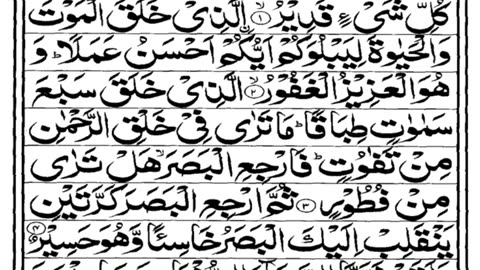 كُلِّ شَیْءٍ قَدِیْرُ ۙ﴿۱﴾ الَّذِیْ خَلَقَ الْمَوْتَ
وَالْحَیٰوةَ لِیَبْلُوَكُمْ اَیُّكُمْ اَحْسَنُ عَمَلًا ؕ وَ
هُوَ الْعَزِیْزُ الْغَفُوْرُ ۙ﴿۲﴾ الَّذِیْ خَلَقَ سَبْعَ
سَمٰوٰتٍ طِبَاقًا ؕ مَا تَرٰی فِیْ خَلْقِ الرَّحْمٰنِ
مِنْ تَفٰوُتٍ ؕ فَارْجِعِ الْبَصَرَ ۙ هَلْ تَرٰی
مِنْ فُطُوْرٍ ﴿۳﴾ ثُمَّ ارْجِعِ الْبَصَرَ كَرَّتَیْنِ
یَنْقَلِبْ اِلَیْكَ الْبَصَرُ خَاسِئًا وَّهُوَ حَسِیْرٌ ﴿۴﴾